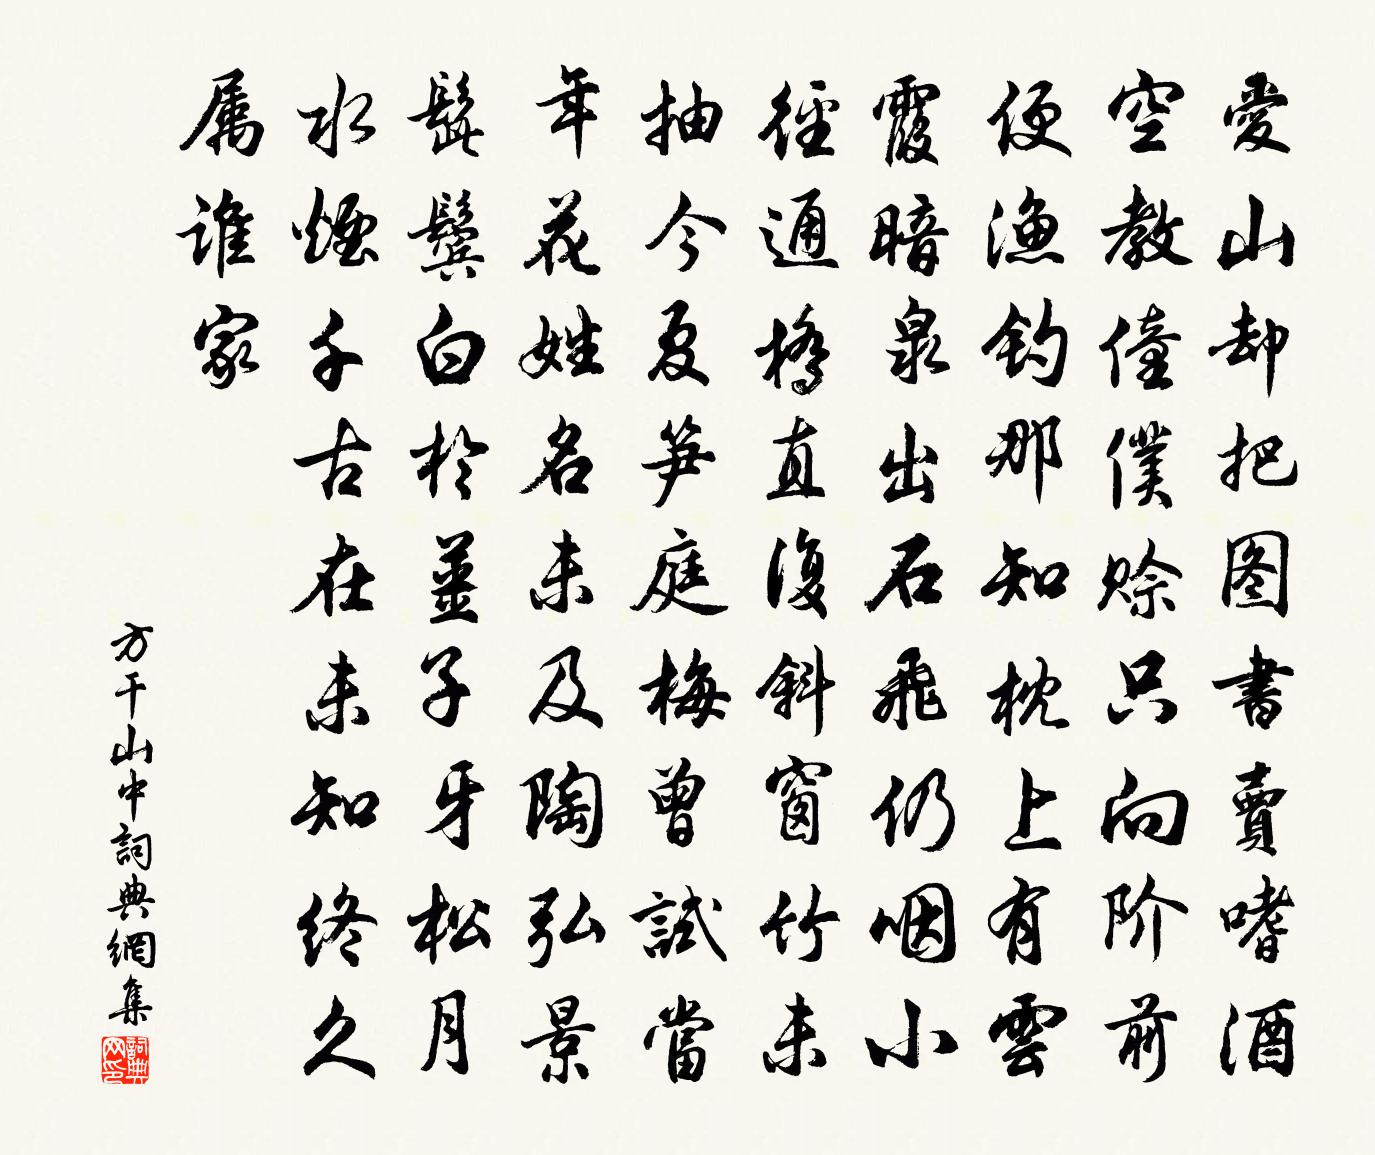 愛山却把图書賣嗜酒
空教僮僕賒只向阶前
便漁釣那知枕上有雲
霞暗泉出石飛仍咽小
徑通橋直復斜窗竹未
抽今夏笋庭梅曾試當
年花姓名未及陶弘景
髭鬢白於薑子牙松月
水煙千古在未知终久
属誰家
方干山中詞典網集
詞典网印